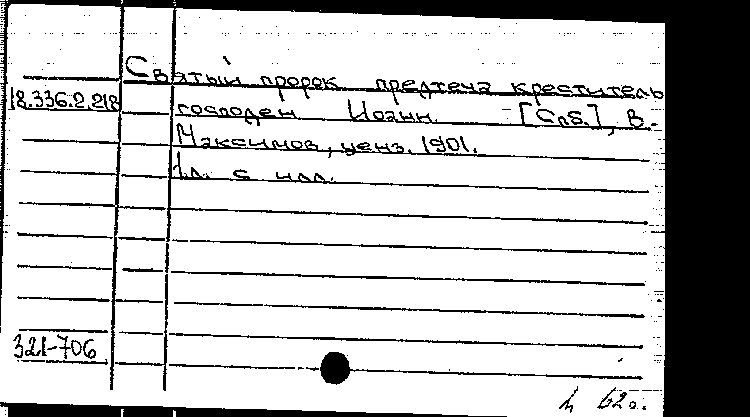 Святый пророк предтеча креститель
18.336.2.218
господен Иоанн. [Спб.], В.
Максимов, ценз. 1901.
1л. с илл.
321-706
62г.